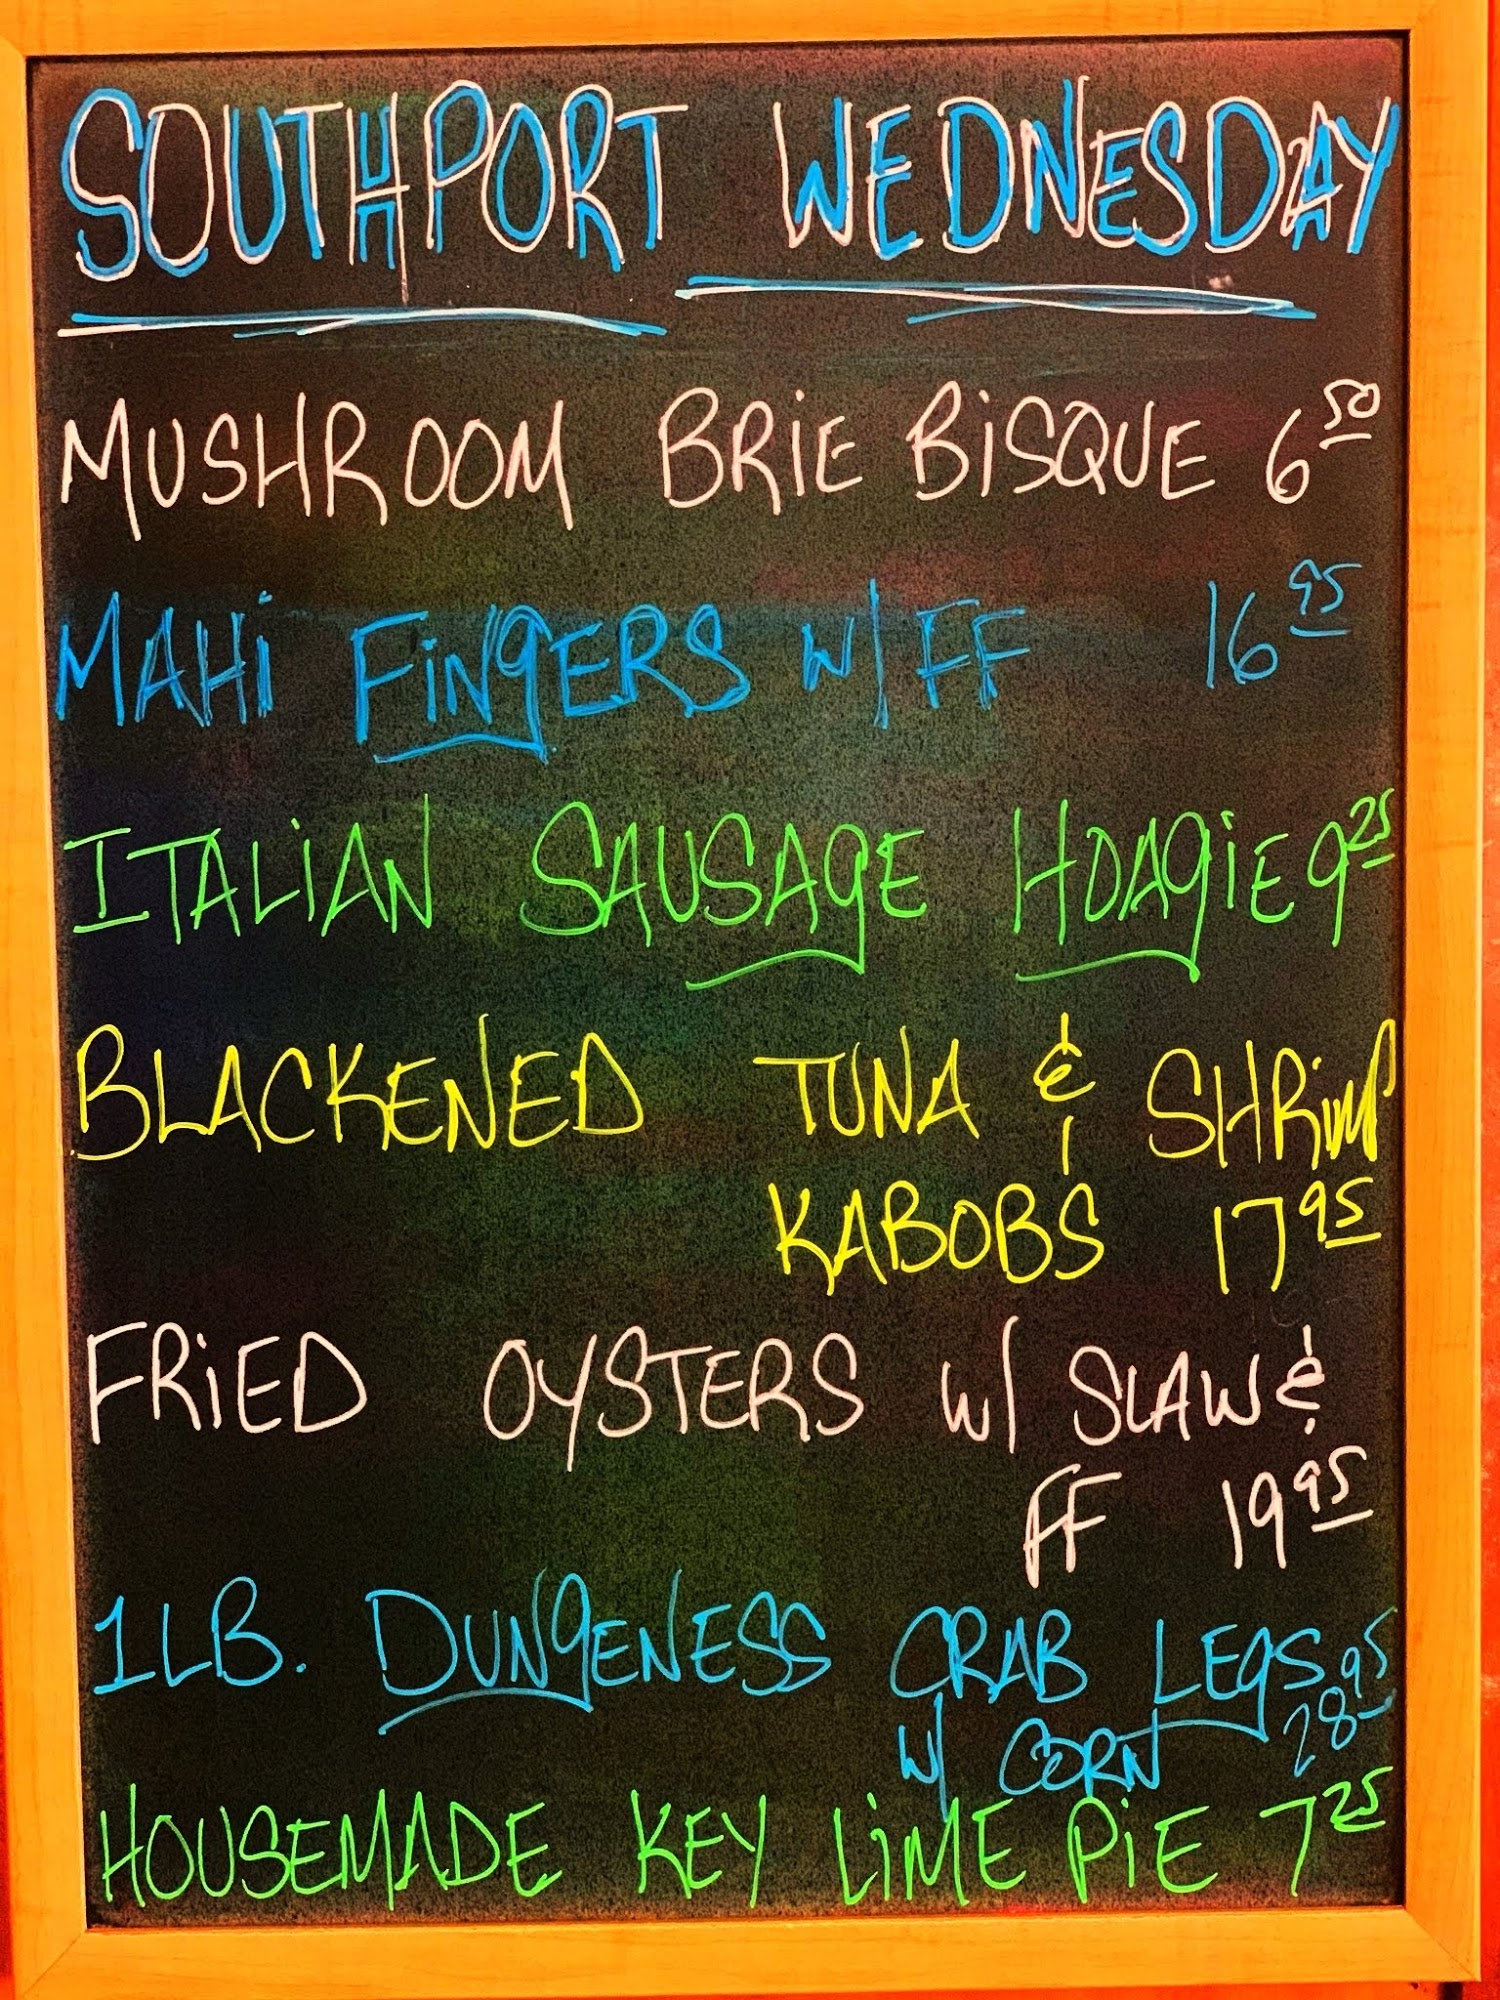 SOUTHPORT WEDNESDAY
MUSHROOM BRIE BISQUE 6 50
MAHI FINGERS W/ FF 16 95
ITALIAN SAUSAGE HOAGIE 9 25
BLACKENED TUNA & SHRIMP
KABOBS 17 95
FRIED OYSTERS W/ SLAW &
FF 19 95
1 LB. DUNGENESS CRAB LEGS
W/ CORN 28 95
HOUSEMADE KEY LIME PIE 7 25